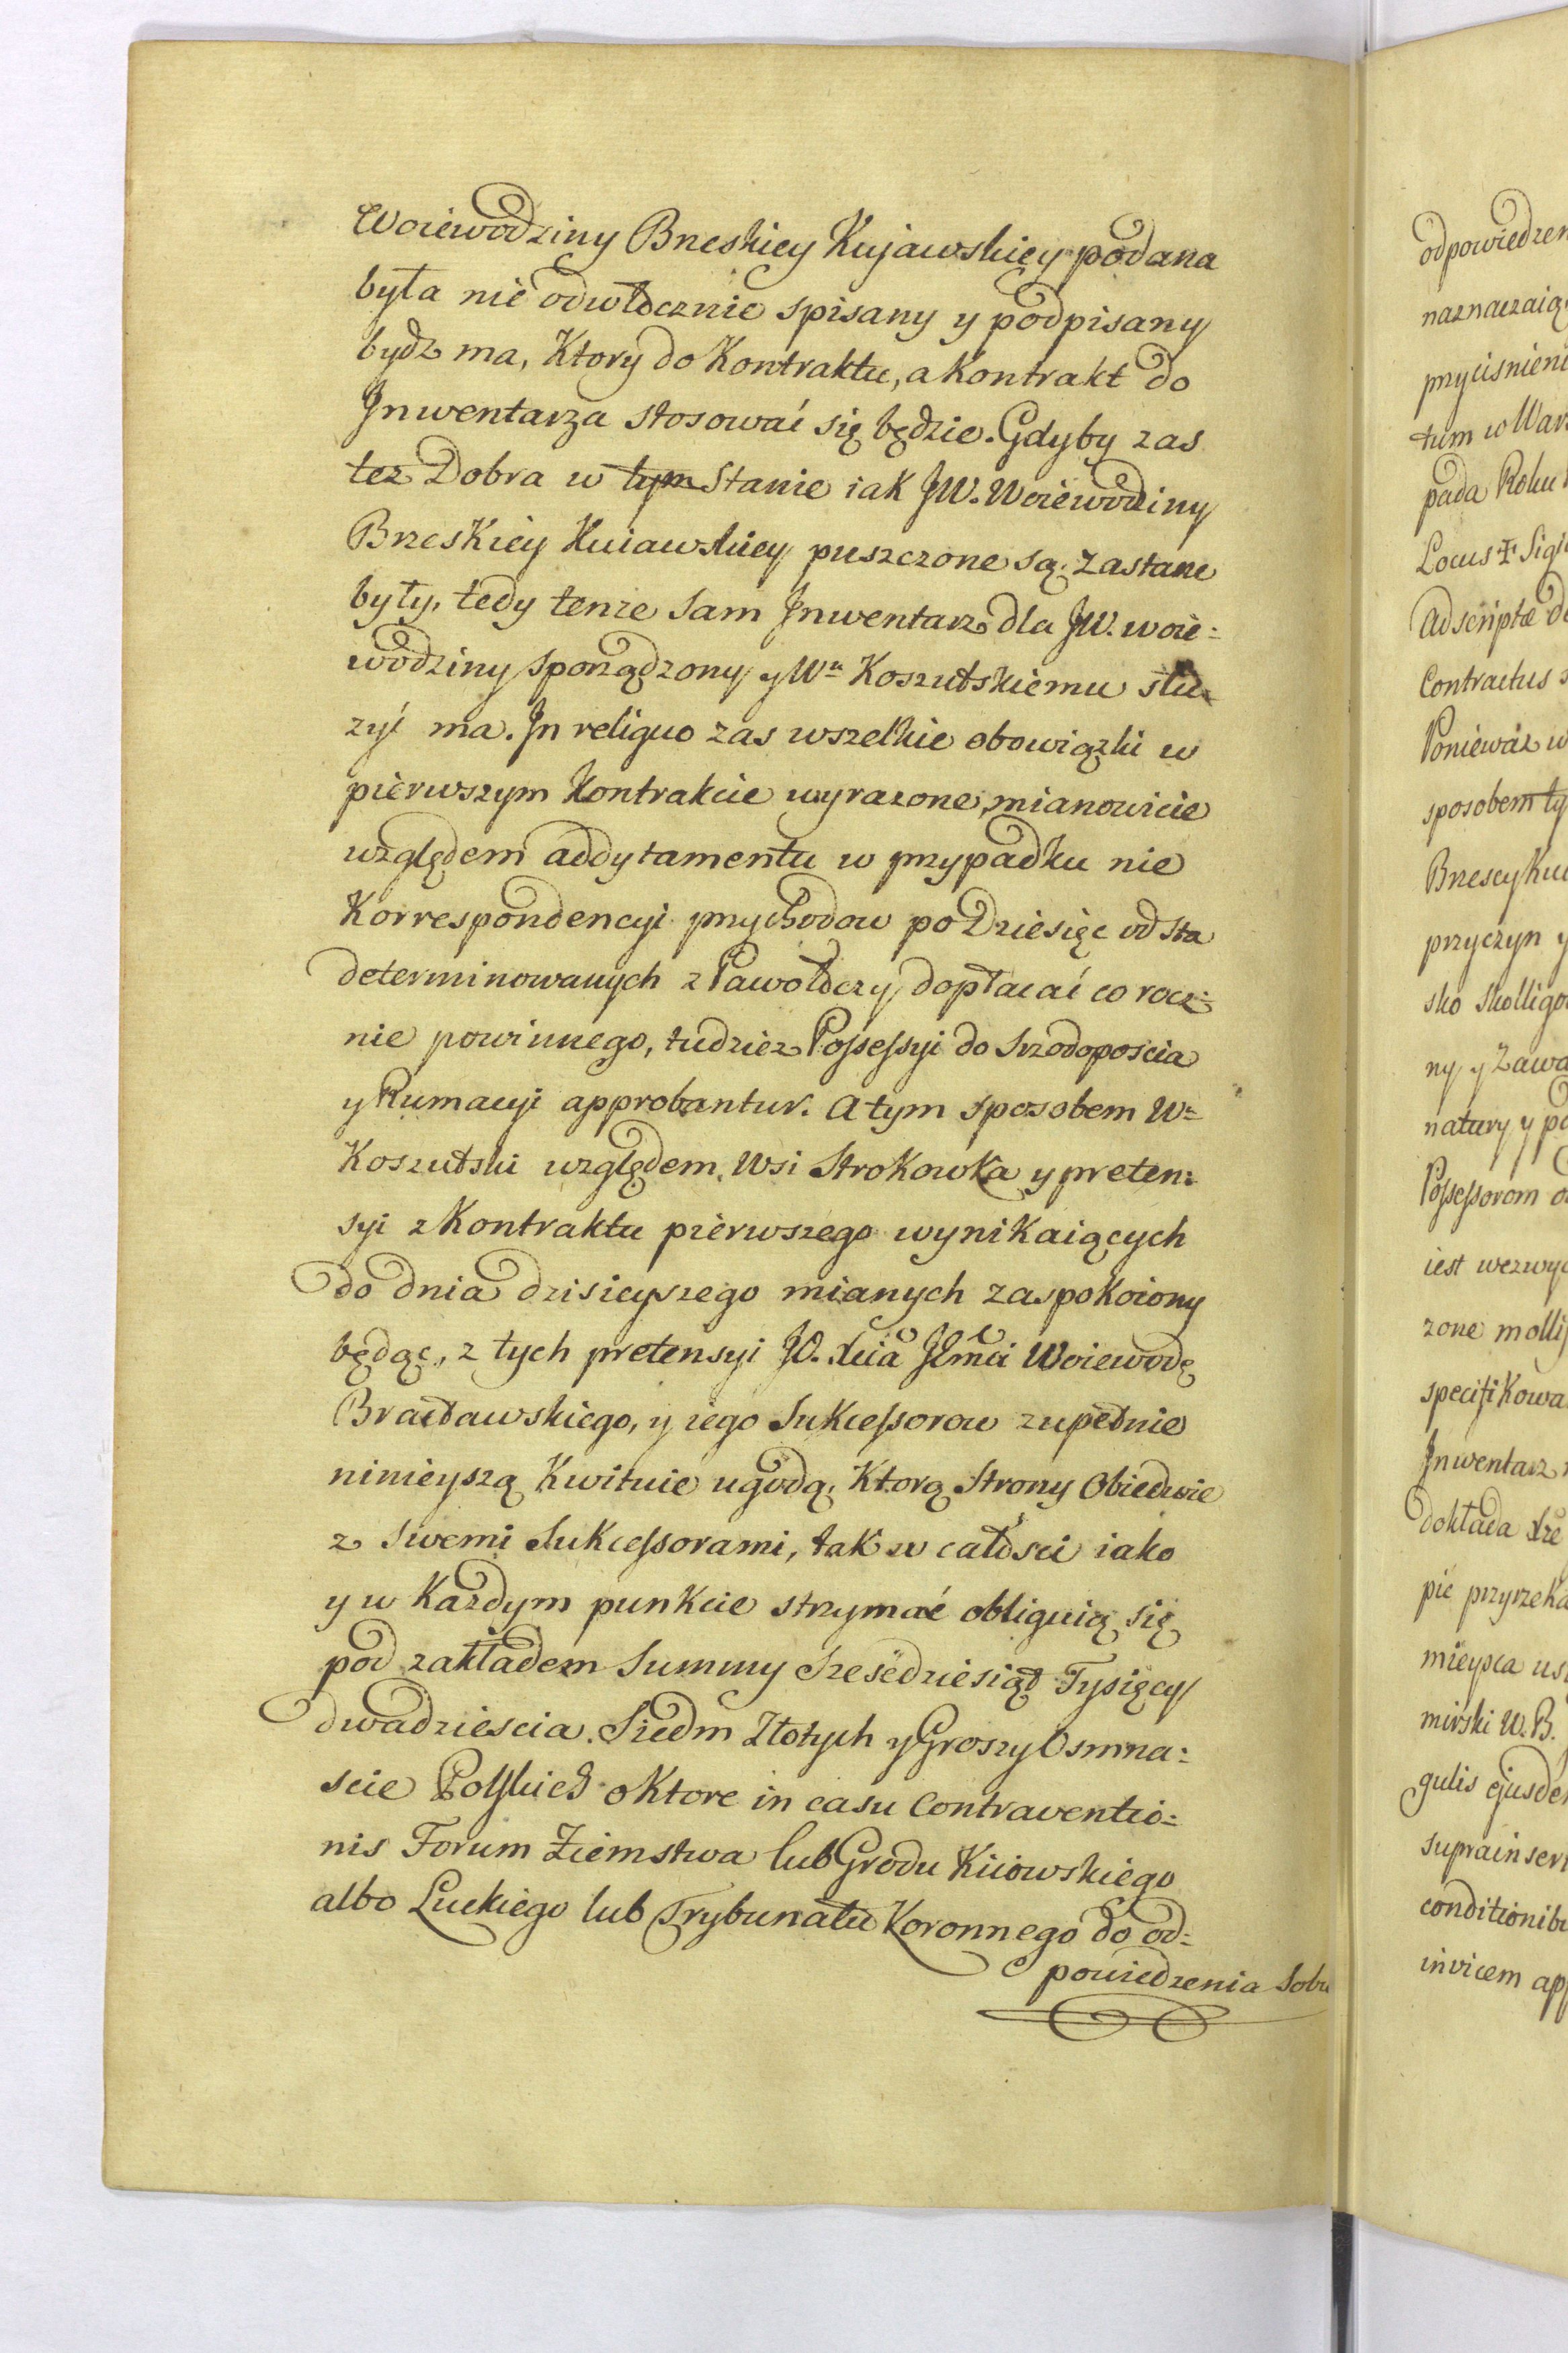 Woiewodziny Brzeskiey Kujawskiey podana
była nie odwłocznie spisany y podpisany
bydz ma, Ktory do Kontraktu, a Kontrakt do
Jnwentarza stosować się będzie. Gdyby zas
też Dobra w tym Stanie iak JW. Woiewodziny
Brzeskiey Kuiawskiey puszczone są, zastane
były, tedy tenze sam Jnwentarz dla JW. woie=
wodziny sporządzony y Wu Koszutskiemu słu=
zyć ma. Jn reliquo zas wszelkie obowiązki w
pierwszym Kontrakcie wyrazone, mianowicie
względem addytamentu w przypadku nie
Korrespondencyi przychodow po Dziesięc od sta
determinowanych z Pawołoczy dopłacać co rocz=
nie powinnego, tudziez Possessyi do Srzodoposcia
y Rumacyi approbantur. A tym sposobem W=
Koszutski względem Wsi StroKowKa y preten=
syi z Kontraktu pierwszego wyniKaiących
do dnia dzisieyszego mianych zaspoKoiony
będąc, z tych pretensyi JO. Xcia JEmci Woiewodę
Bracławskiego, y iego SuKcessorow zupełnie
ninieyszą Kwituie ugodą, Ktorą Strony Obiedwie
z swemi Sukcessorami, tak w całości iako
y w Kazdym punKcie strzymać obliguią się
pod zakładem Summy Szesędziesiąt Tysięcy
dwadziescia Siedm Złotych y Groszy Osmna=
scie Polskich o Ktore in casu Contraventio=
nis Forum Ziemstwa lub Grodu Kiiowskiego
albo Łuckiego lub Trybunału Koronnego do od=
powiedzenia Sobie
odpowiedzen
naznaczaią
przyciśnieni
tum w Wars
pada Roku
Locus ‡ Sigi
Adscriptæ de
Contractus s
Poniewáz w
sposobem ty
Brzescy Kui
przyczyn y
sko Skolligo
ny y Zawa
natury y po
Possessorom o
iest wezwyc
zone mollif
specifiKowa
Jnwentarz n
dokłada Xże
pić przyrzeKa
mieysca us
mirski W. B.
gulis ejusdem
suprainser
conditionibu
invicem app